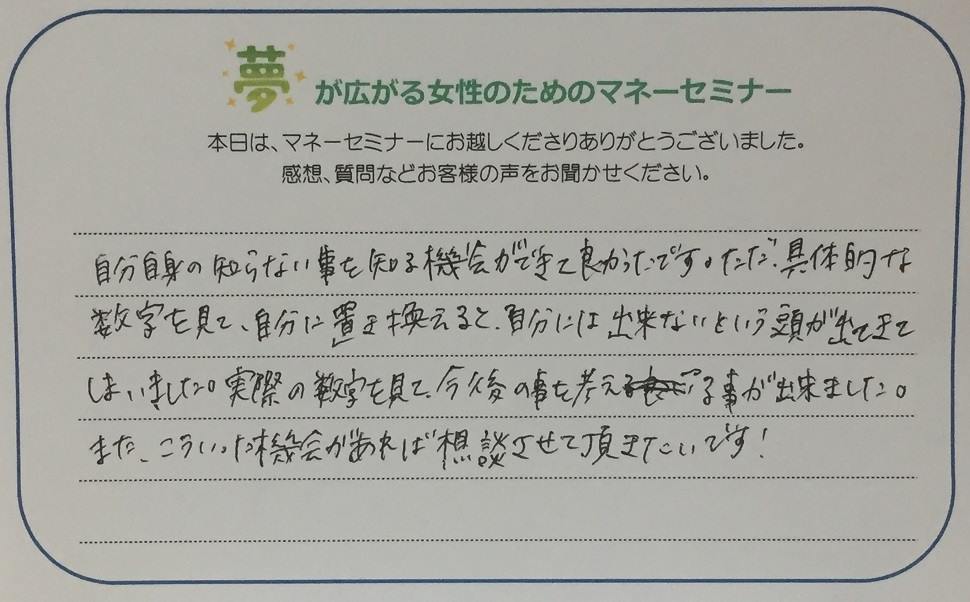 夢が広がる女性のためのマネーセミナー
本日は、マネーセミナーにお越しくださりありがとうございました。
感想、質問などお客様の声をお聞かせください。
自分自身の知らない事を知る機会ができて良かったです。ただ、具体的な
数字を見て、自分に置き換えると、自分には出来ないという頭が出てきて
しまいました。実際の数字を見て、今後の事を考える事が出来ました。
また、こういった機会があれば想談させて頂きたいです!